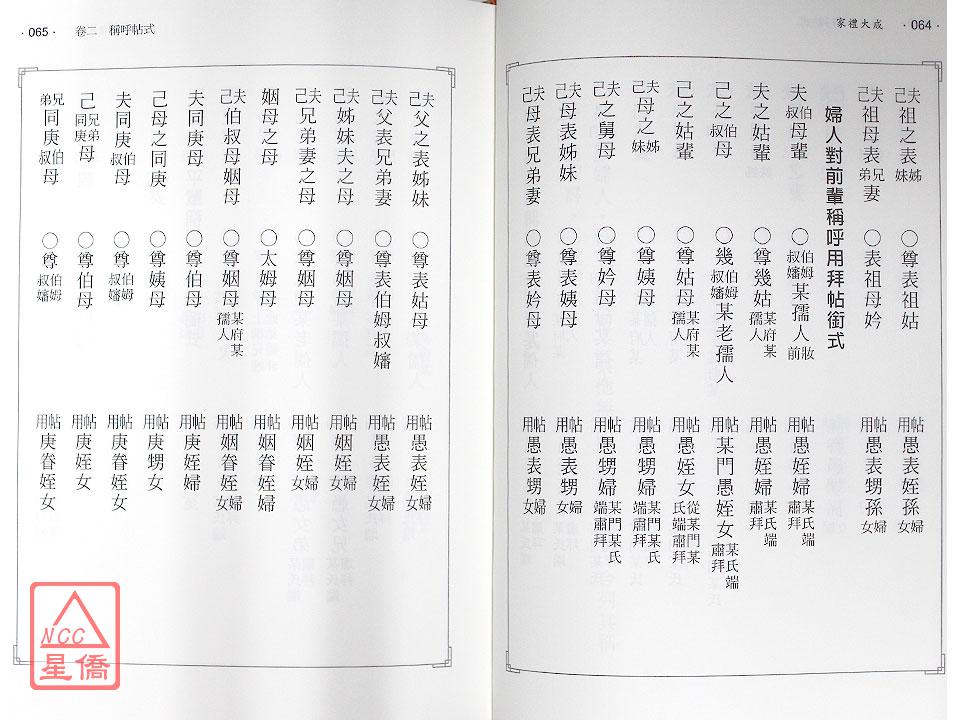 家禮大成 · 064 ·
夫己祖之表姊妹 ○尊表祖姑 帖用愚表姪孫婦女
夫己祖母表兄弟妻 ○表祖母妗 帖用愚表甥孫婦女
婦人對前輩稱呼用拜帖銜式
夫伯叔母 ○伯姆叔嬸某孺人妝前 帖用愚姪婦某氏端肅拜
夫之姑輩 ○尊幾姑某府某孺人 帖用愚姪婦某氏端肅拜
己之伯叔母 ○幾伯姆叔嬸某老孺人 帖用某門愚姪女某氏端肅拜
己之姑輩 ○尊姑母某府某孺人 帖用愚姪女從某門某氏端肅拜
夫己母之姊妹 ○尊姨母 帖用愚甥婦某門某氏端肅拜
夫己之舅母 ○尊妗母 帖用愚甥婦某門某氏端肅拜
夫己母表姊妹 ○尊表姨母 帖用愚表甥婦女
夫己母表兄弟妻 ○尊表妗母 帖用愚表甥婦女
· 065 · 卷二 稱呼帖式
夫己父之表姊妹 ○尊表姑母 帖用愚表姪婦女
夫己父表兄弟妻 ○尊表伯姆叔嬸 帖用愚表姪婦女
夫己姊妹夫之母 ○尊姻母 帖用姻姪婦女
夫己兄弟妻之母 ○尊姻母 帖用姻姪婦女
姻母之母 ○太姆母 帖用姻眷姪婦
夫己伯叔母姻母 ○尊姻母某府某孺人 帖用姻眷姪婦女
夫同庚母 ○尊伯母 帖用庚姪婦
己母之同庚 ○尊姨母 帖用庚甥女
夫同庚伯叔母 ○尊伯姆叔嬸 帖用庚眷姪女
己兄弟同庚母 ○尊伯母 帖用庚眷姪女
兄弟同庚伯叔母 ○尊伯姆叔嬸 帖用庚眷姪女
NCC
星僑